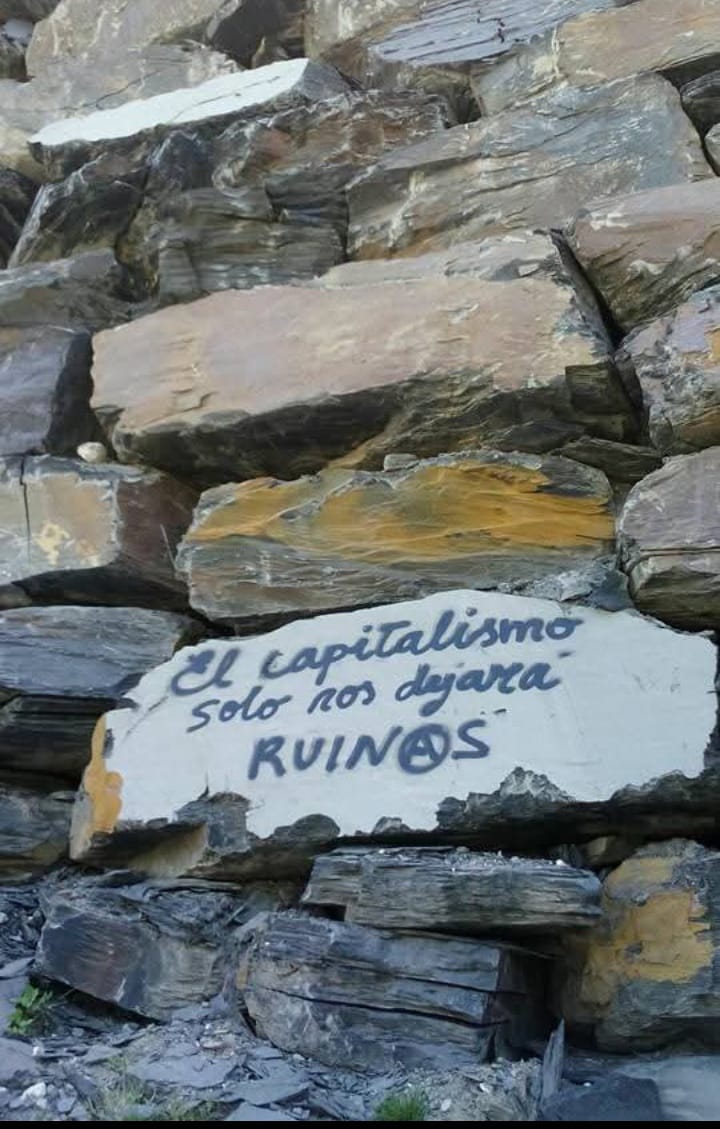 El capitalismo
solo nos dejará
RUINⒶS